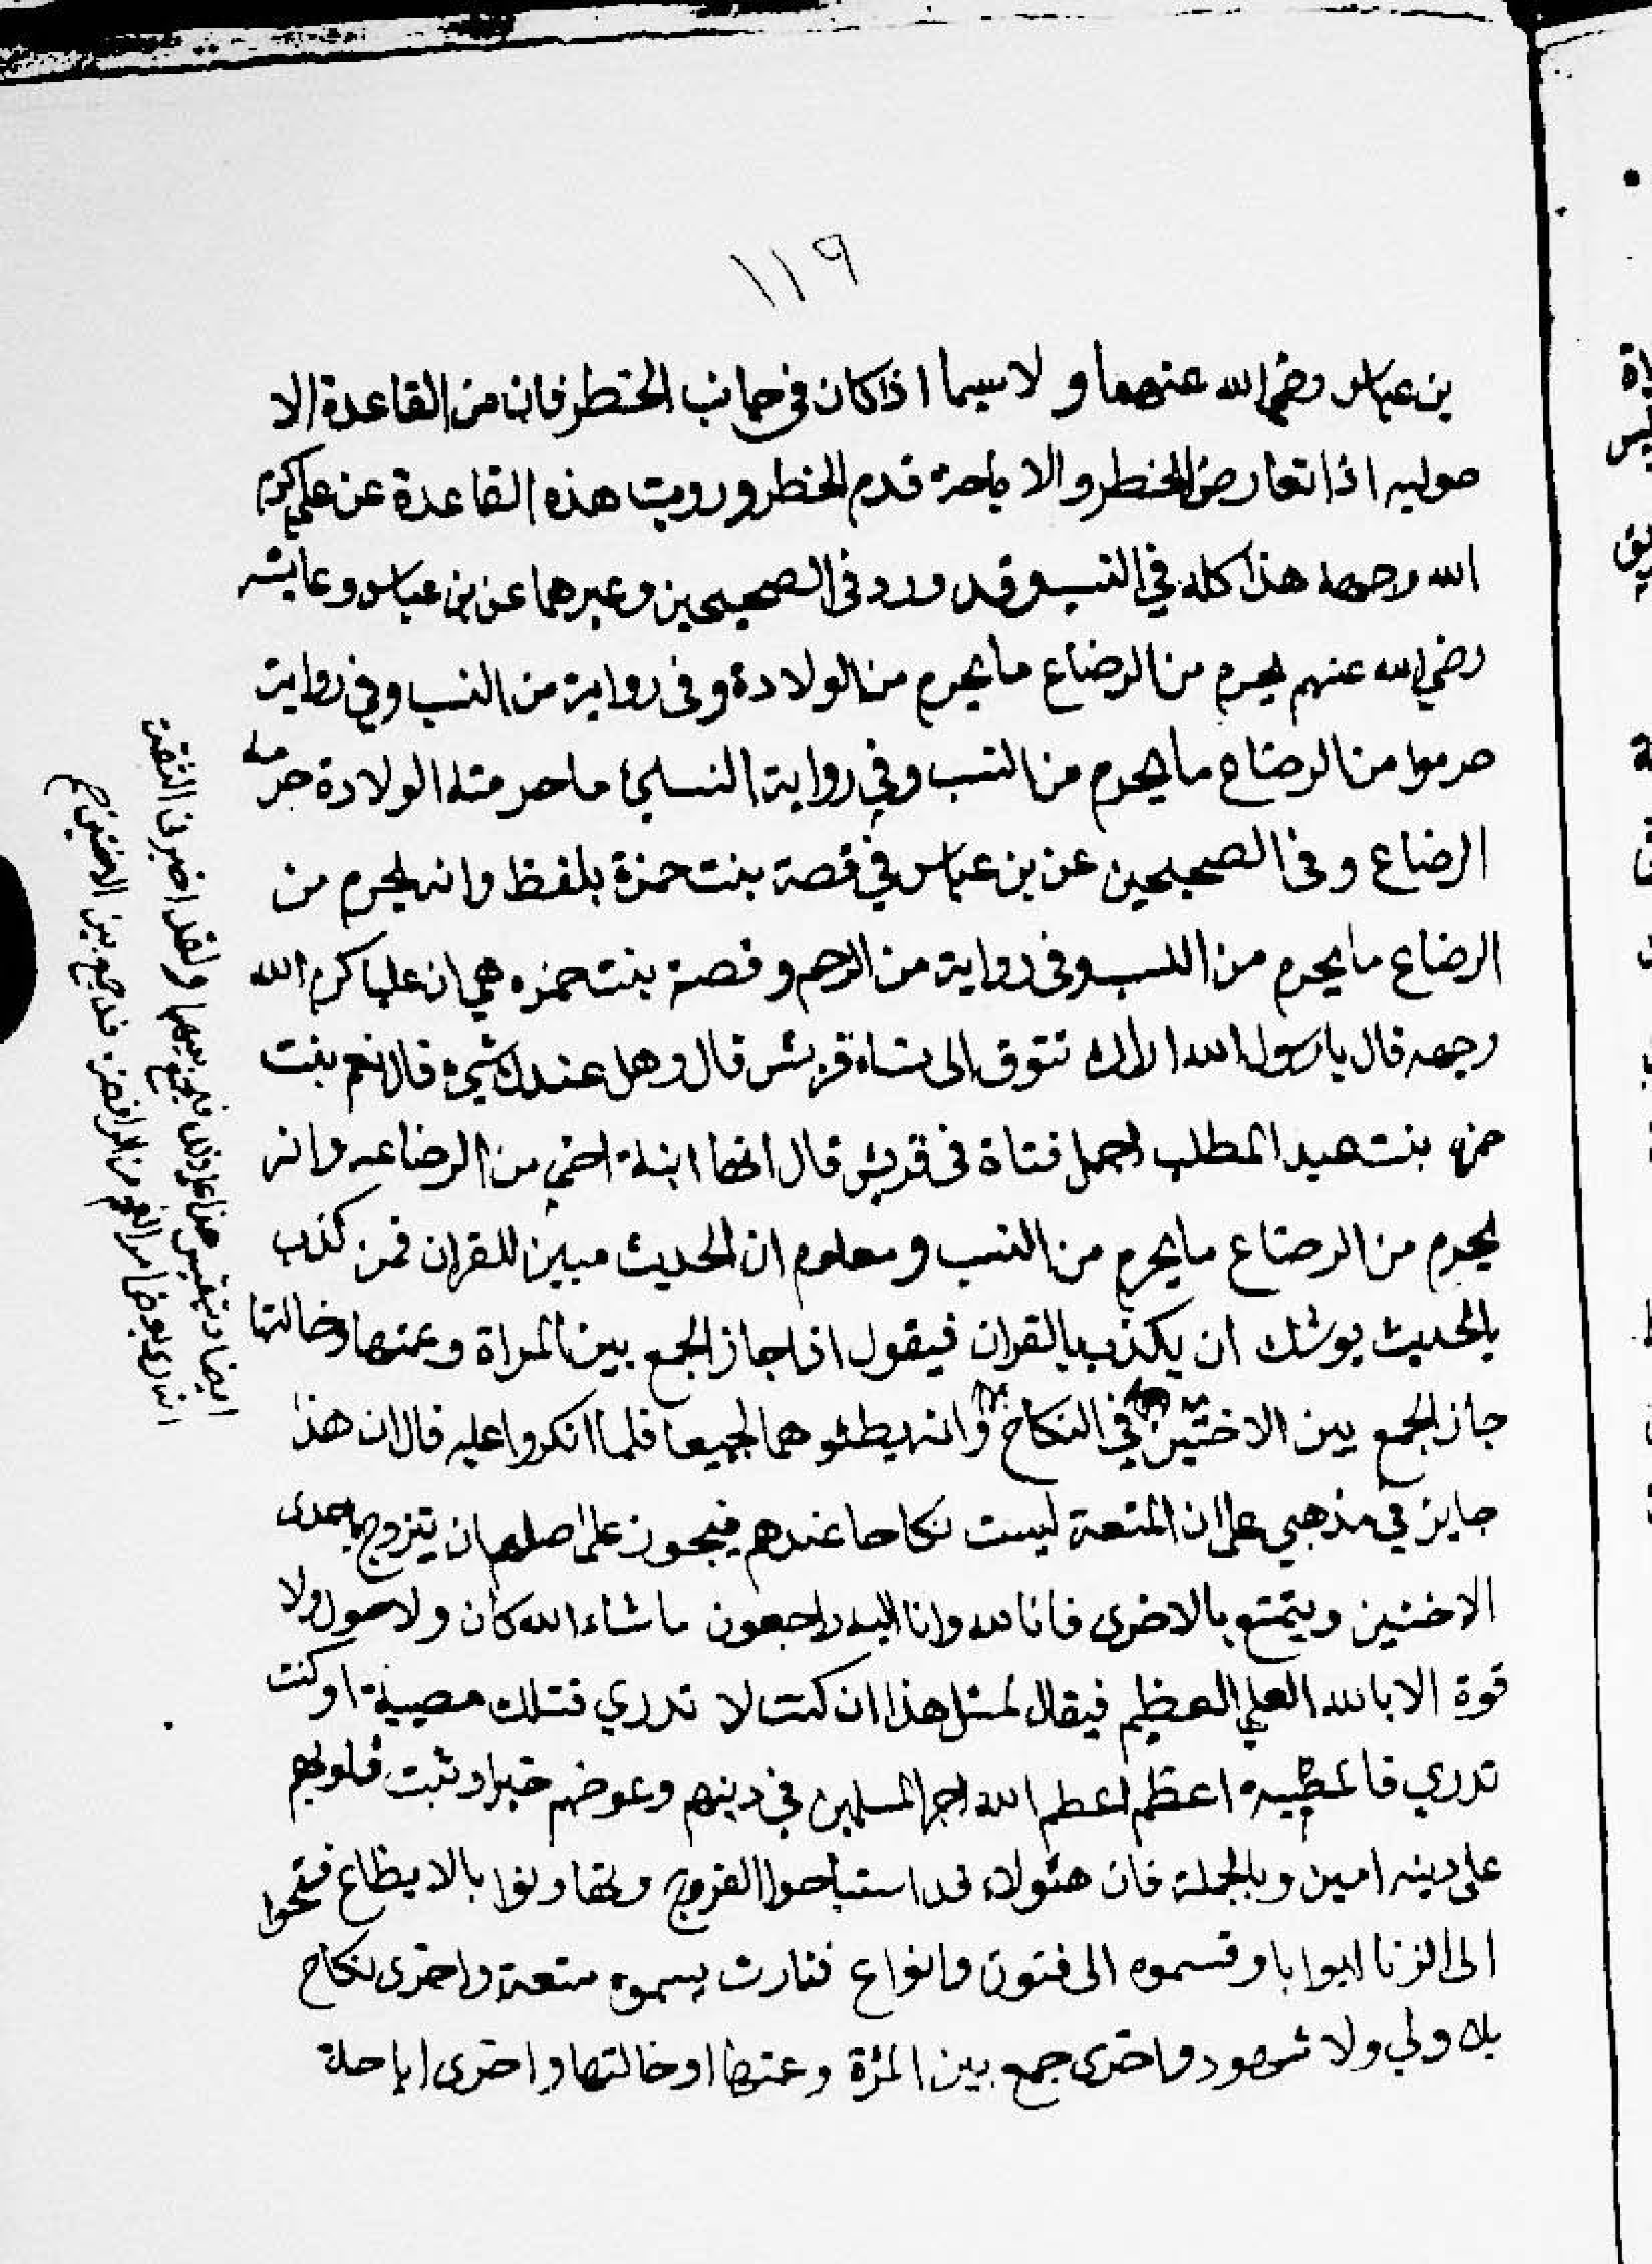 ١١٩
بن عباس رضي الله عنهما و لا سيما اذا كان في جانب الحظر فان من القاعدة الا
صوليه اذا تعارض الحظر والاباحة قدم الحظر ورويت هذه القاعدة عن علي كرم
الله وجهه هذا كله في النسب وقد ورد في الصحيحين وغيرهما عن بن عباس وعايشه
رضي الله عنهم يحرم من الرضاع ما يحرم من الولادة وفي رواية من النسب وفي رواية
حرموا من الرضاع ما يحرم من النسب وفي رواية النسائي ما حرمته الولادة حرمه
الرضاع وفي الصحيحين عن بن عباس في قصة بنت حمزة بلفظ وانه يحرم من
الرضاع ما يحرم من النسب وفي رواية من الرحم وقصة بنت حمزه هي ان عليا كرم الله
وجهه قال يارسول الله اراك تتوق الى نساء قريش قال وهل عندك شيء قال نعم بنت
حمزه بنت عبد المطلب اجمل فتاة في قريش قال انها ابنة اخي من الرضاعه وانه
يحرم من الرضاع ما يحرم من النسب ومعلوم ان الحديث مبين للقران فمن كذب
بالحديث يوشك ان يكذب بالقران فيقول اذا جاز الجمع بين المراة وعمتها وخالتها
جاز الجمع بين الاختين في النكاح وانه يطئوهما جميعا فلما انكروا عليه قال ان هذا
جايز في مذهبي على ان المتعة ليست نكاحا عندهم فيجوز على اصلهم ان يتزوج باحدى
الاختين ويتمتع بالاخرى فانا لله وانا اليه راجعون ما شاء الله كان ولا حول ولا
قوة الا بالله العلي العظيم فيقال لمثل هذا ان كنت لا تدري فتلك مصيبة او كنت
تدري فالمصيبة اعظم اعظم الله اجر المسلمين في دينهم وعوضهم خيرا وثبت قلوبهم
على دينه امين وبالجملة فان هئولاء قد استباحوا الفروج وتهاونوا بالابضاع ففتحوا
الى الزنا ابوابا وقسموه الى فنون وانواع فتارت يسموه متعة واخرى نكاح
بلا ولي ولا شهود واخرى جمع بين المرة وعمتها او خالتها واخرى اباحة
ايضا ويقيس هذا على ذلك فيجمع بينهما ولقد اخبرني الثقة
انه راى بعض امراء من الرافضه قد جمع بين الاختين